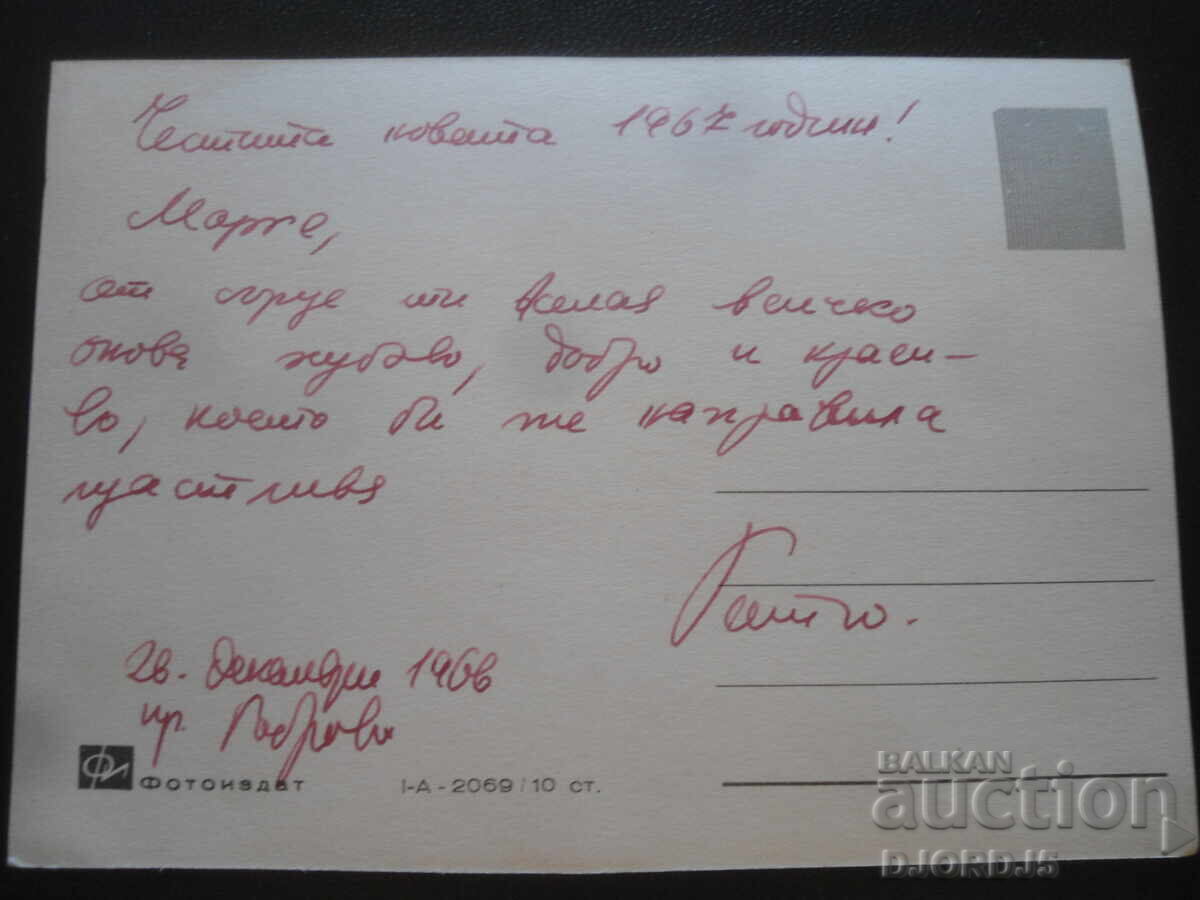 Честита новата 1967 година!
Марже,
от сърце ти желая всичко
онова хубаво, добро и краси-
во, което би те направила
щастлива
Ганчо.
26. декември 1966
гр. Габрово
Фотоиздат I-А-2069/10 ст.
BALKAN
auction
DJORDJ5